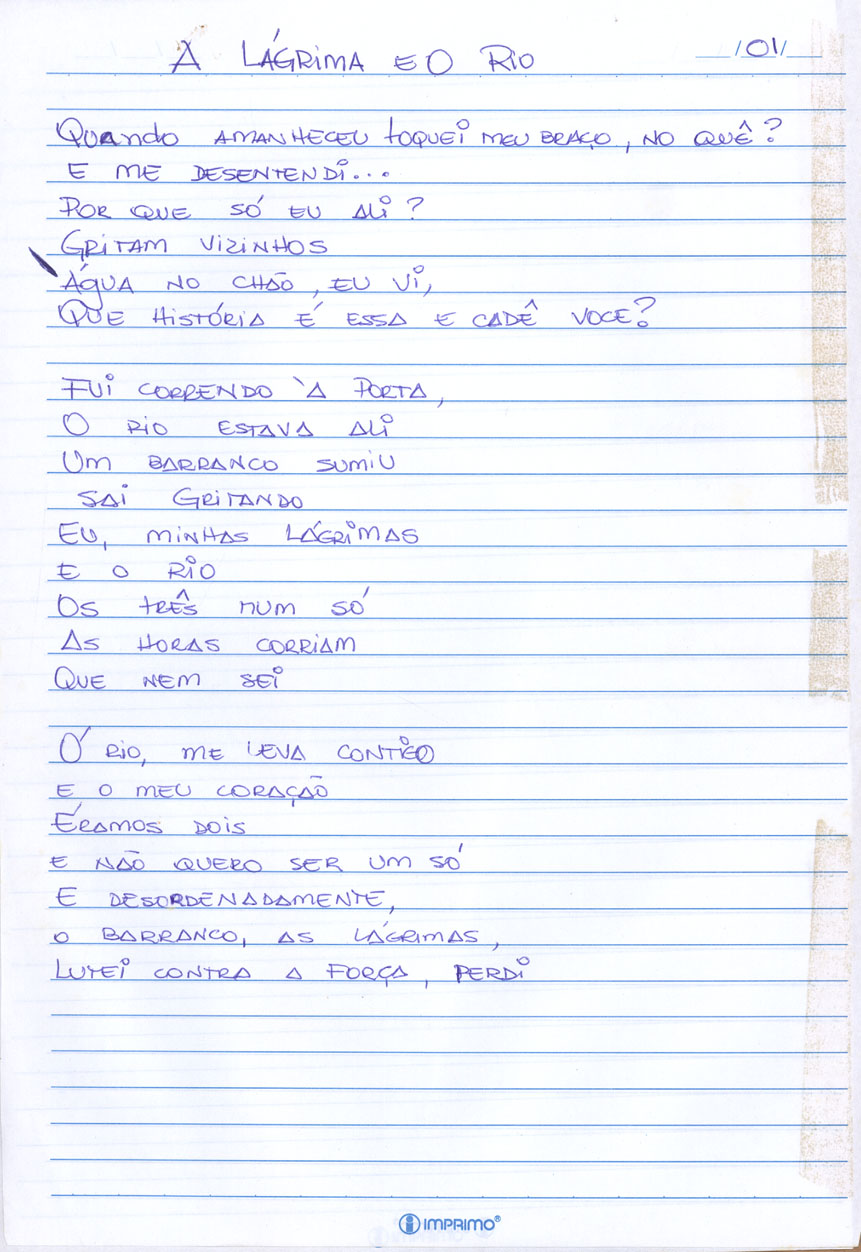 A LÁGRIMA E O RIO
__/01/__
Quando AMANHECEU toquei MEU BRAÇO, NO QUÊ?
E ME DESENTENDi...
POR QUE SÓ EU ALi?
GRITAM VIZINHOS
ÁGUA NO CHÃO, EU Vi,
QUE HiSTÓRiA É ESSA E CADÊ VOCE?
FUi CORRENDO À PORTA,
O RiO ESTAVA ALi
UM BARRANCO SUMiU
SAi GRiTANDO
EU, MiNHAS LÁGRiMAS
E O RiO
OS tRÊS NUM SÓ
AS HORAS CORRiAM
QUE NEM SEi
Ó RiO, ME LEVA CONTiGO
E O MEU CORAÇÃO
ÉRAMOS DOiS
E NÃO QUERO SER UM SÓ
E DESORDENADAMENTE,
O BARRANCO, AS LÁGRiMAS,
LUTEi CONTRA A FORÇA, PERDi
IMPRIMO®